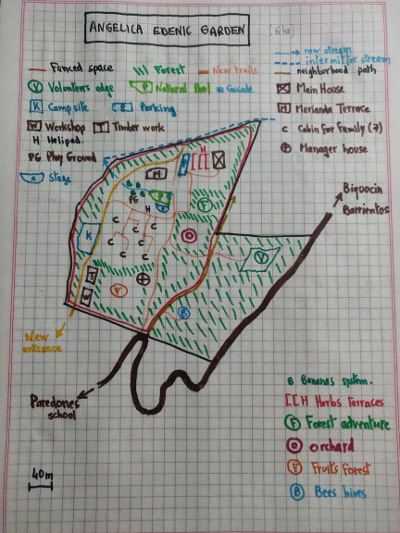 ANGELICA EDENIC GARDEN (6 ha)
new stream
intermitter stream
Fenced space
Forest
New trails
neighborhood path
V Volunteers edge
P Natural Pool
Cascade
Main House
K Camp site
Parking
M Merienda Terrace
W Workshop
T Timber work
C Cabin for Family (7)
H Helipad
Manager house
PG Play Ground
Stage
Biqoocin
Barrientos
M
F
PG
H
C
C
C
C
C
C
C
K
V
T
W
F
B
New
entrance
Paredones
school
B Bananas system.
H Herbs Terraces
F Forest adventure
Orchard
F Fruits Forest
B Bees hives
40m